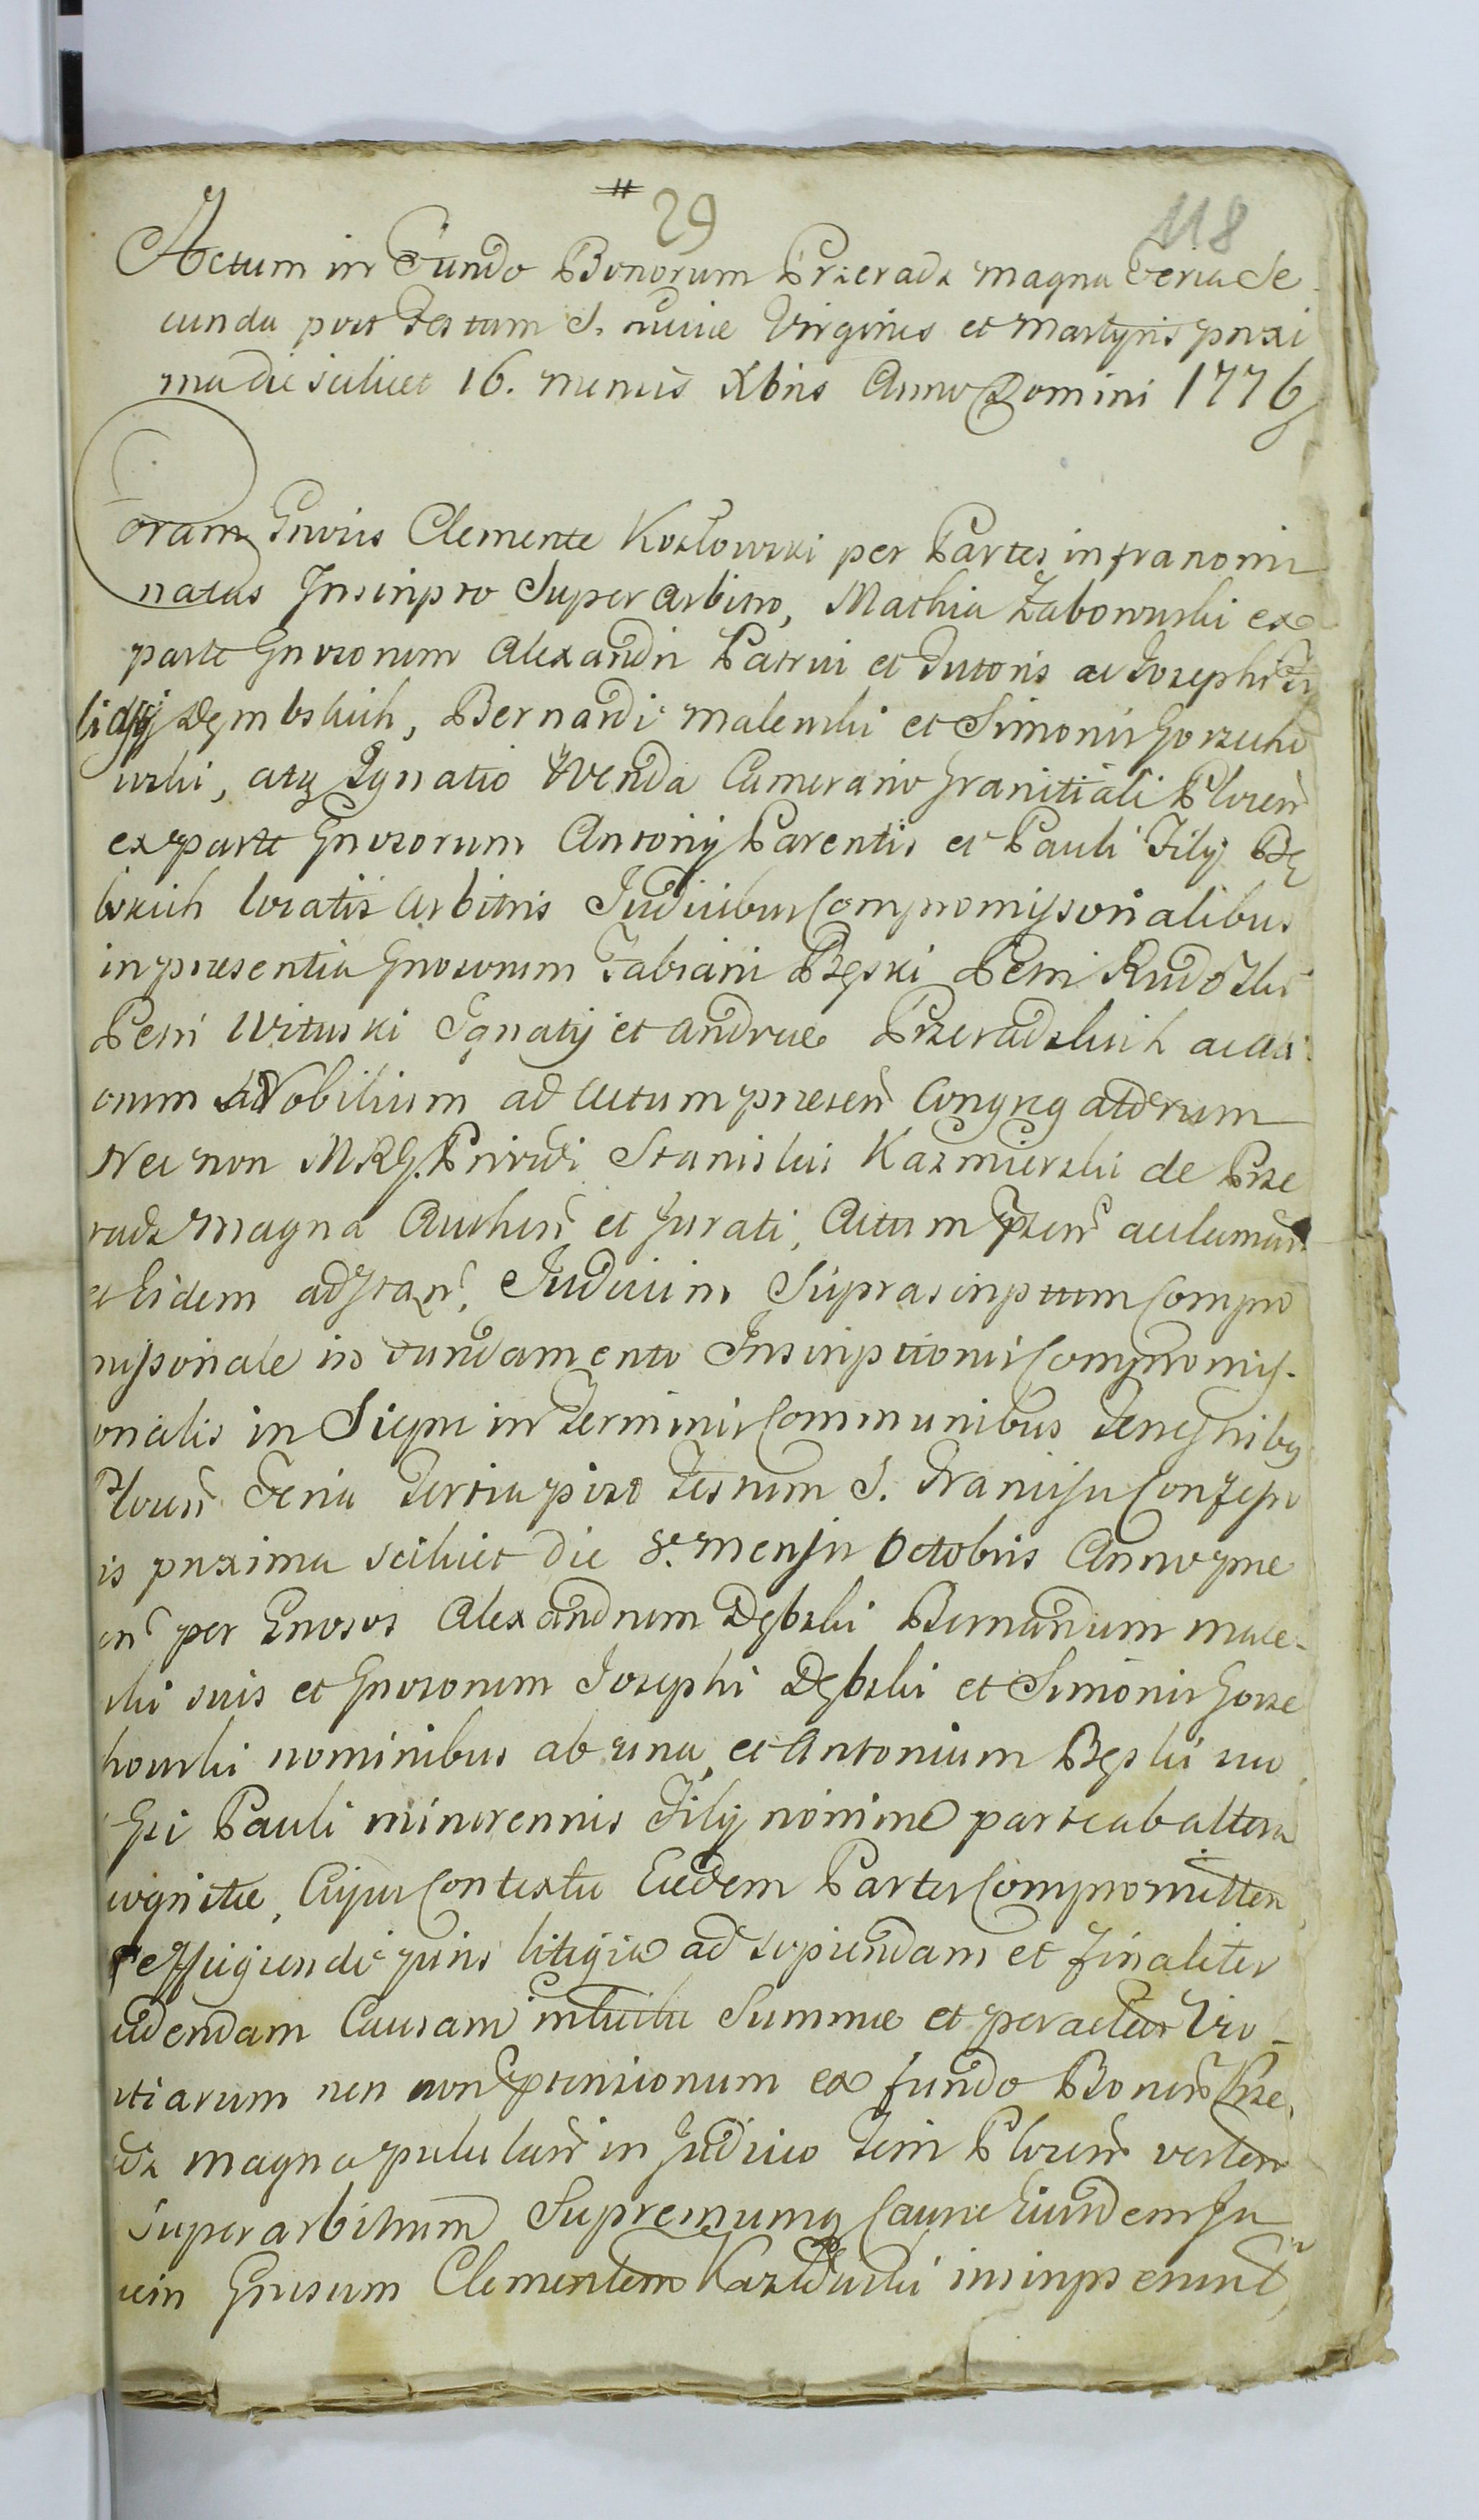 # 29
118
Actum in Fundo Bonorum Przeradz magna Feria Se
cunda post Festum S. Luciæ Virginis et Martyris proxi
ma die scilicet 16. mensis Xbris Anno Domini 1776
Coram Gnosis Clemente Kozłowski per Partes infranomi
natas Inscripto Superarbitro, Mathia Zabowski ex
parte Gnosorum Alexandri Patrui et Tutoris ac Josephi Fi
lij Dembskich, Bernardi Malewski et Simonis Gorzecho
wski, atq Ignatio Wenda Camerario Granitiali Plocen
ex parte Gnosorum Antonij Parentis et Pauli Filij Bę
skich locatis Arbitris Judicibus Compromissorialibus
in præsentia Gnosorum Fabiani Bęski Petri Rudoski
Petri Wituski Ignatij et Andreæ Przeradzkich ac ali
orum Nobilium ad Actum præsen Congregatorum
Nec non MRG. Prividi Stanislai Kazmierski de Prze
radz magna Authen et Jurati, Actum præsen acclaman
et Eidem adstan, Judicium Suprascriptum Compro
missoriale in fundamento Inscriptionis Compromis-
orialis in Sierpc in Terminis Communibus Terrestribus
Plocen Feria Tertia post Festum S. Francisci Confesso
is proxima scilicet die 8. Mensis Octobris Anno præ
en per Gnosos Alexandrum Dębski Bernardum Male-
ski suis et Gnosorum Josephi Dębski et Simonis Gorze
howski nominibus ab una, et Antonium Bęski suo
Gsi Pauli minorennis Filij nomine parte ab altera
cognitæ, Cujus Contextu Eædem Partes Compromitten
effugiendi juris litigia ad sopiendam et finaliter
cidendam Causam intuitu Summæ et peractar Vio-
ntiarum nec non Prætensionum ex fundo Bonorum Prze
adz magna pululan in Judicio Terri Plocen verten
Superarbitrum Supremumq Causæ Eiusdem Ju
icem Gnosum Clementem Kozłowski inscripserunt,